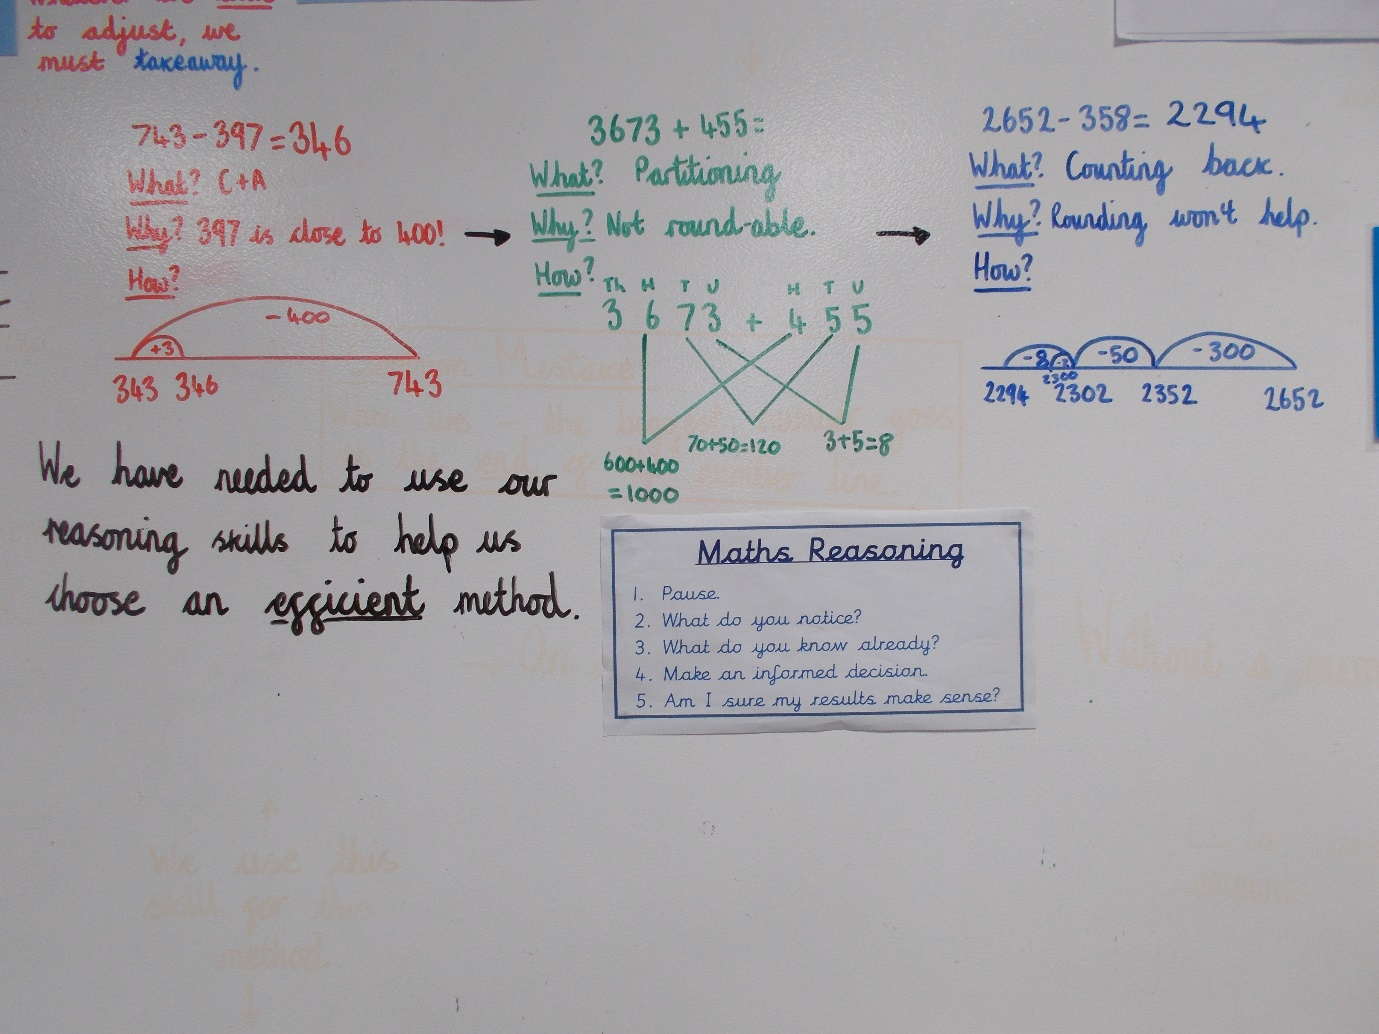 to adjust, we
must takeaway.
743 - 397 = 346
What? C+A
Why? 397 is close to 400!
How?
- 400
+3
343 346 743
3673 + 455 =
What? Partitioning
Why? Not round-able.
How?
Th H T U H T U
3 6 7 3 + 4 5 5
600+400
= 1000
70+50=120
3+5=8
2652 - 358 = 2294
What? Counting back.
Why? Rounding won't help.
How?
-8 -50 -300
2300
2294 2302 2352 2652
We have needed to use our
reasoning skills to help us
choose an efficient method.
Maths Reasoning
1. Pause.
2. What do you notice?
3. What do you know already?
4. Make an informed decision.
5. Am I sure my results make sense?
We use this
skill for this
method.